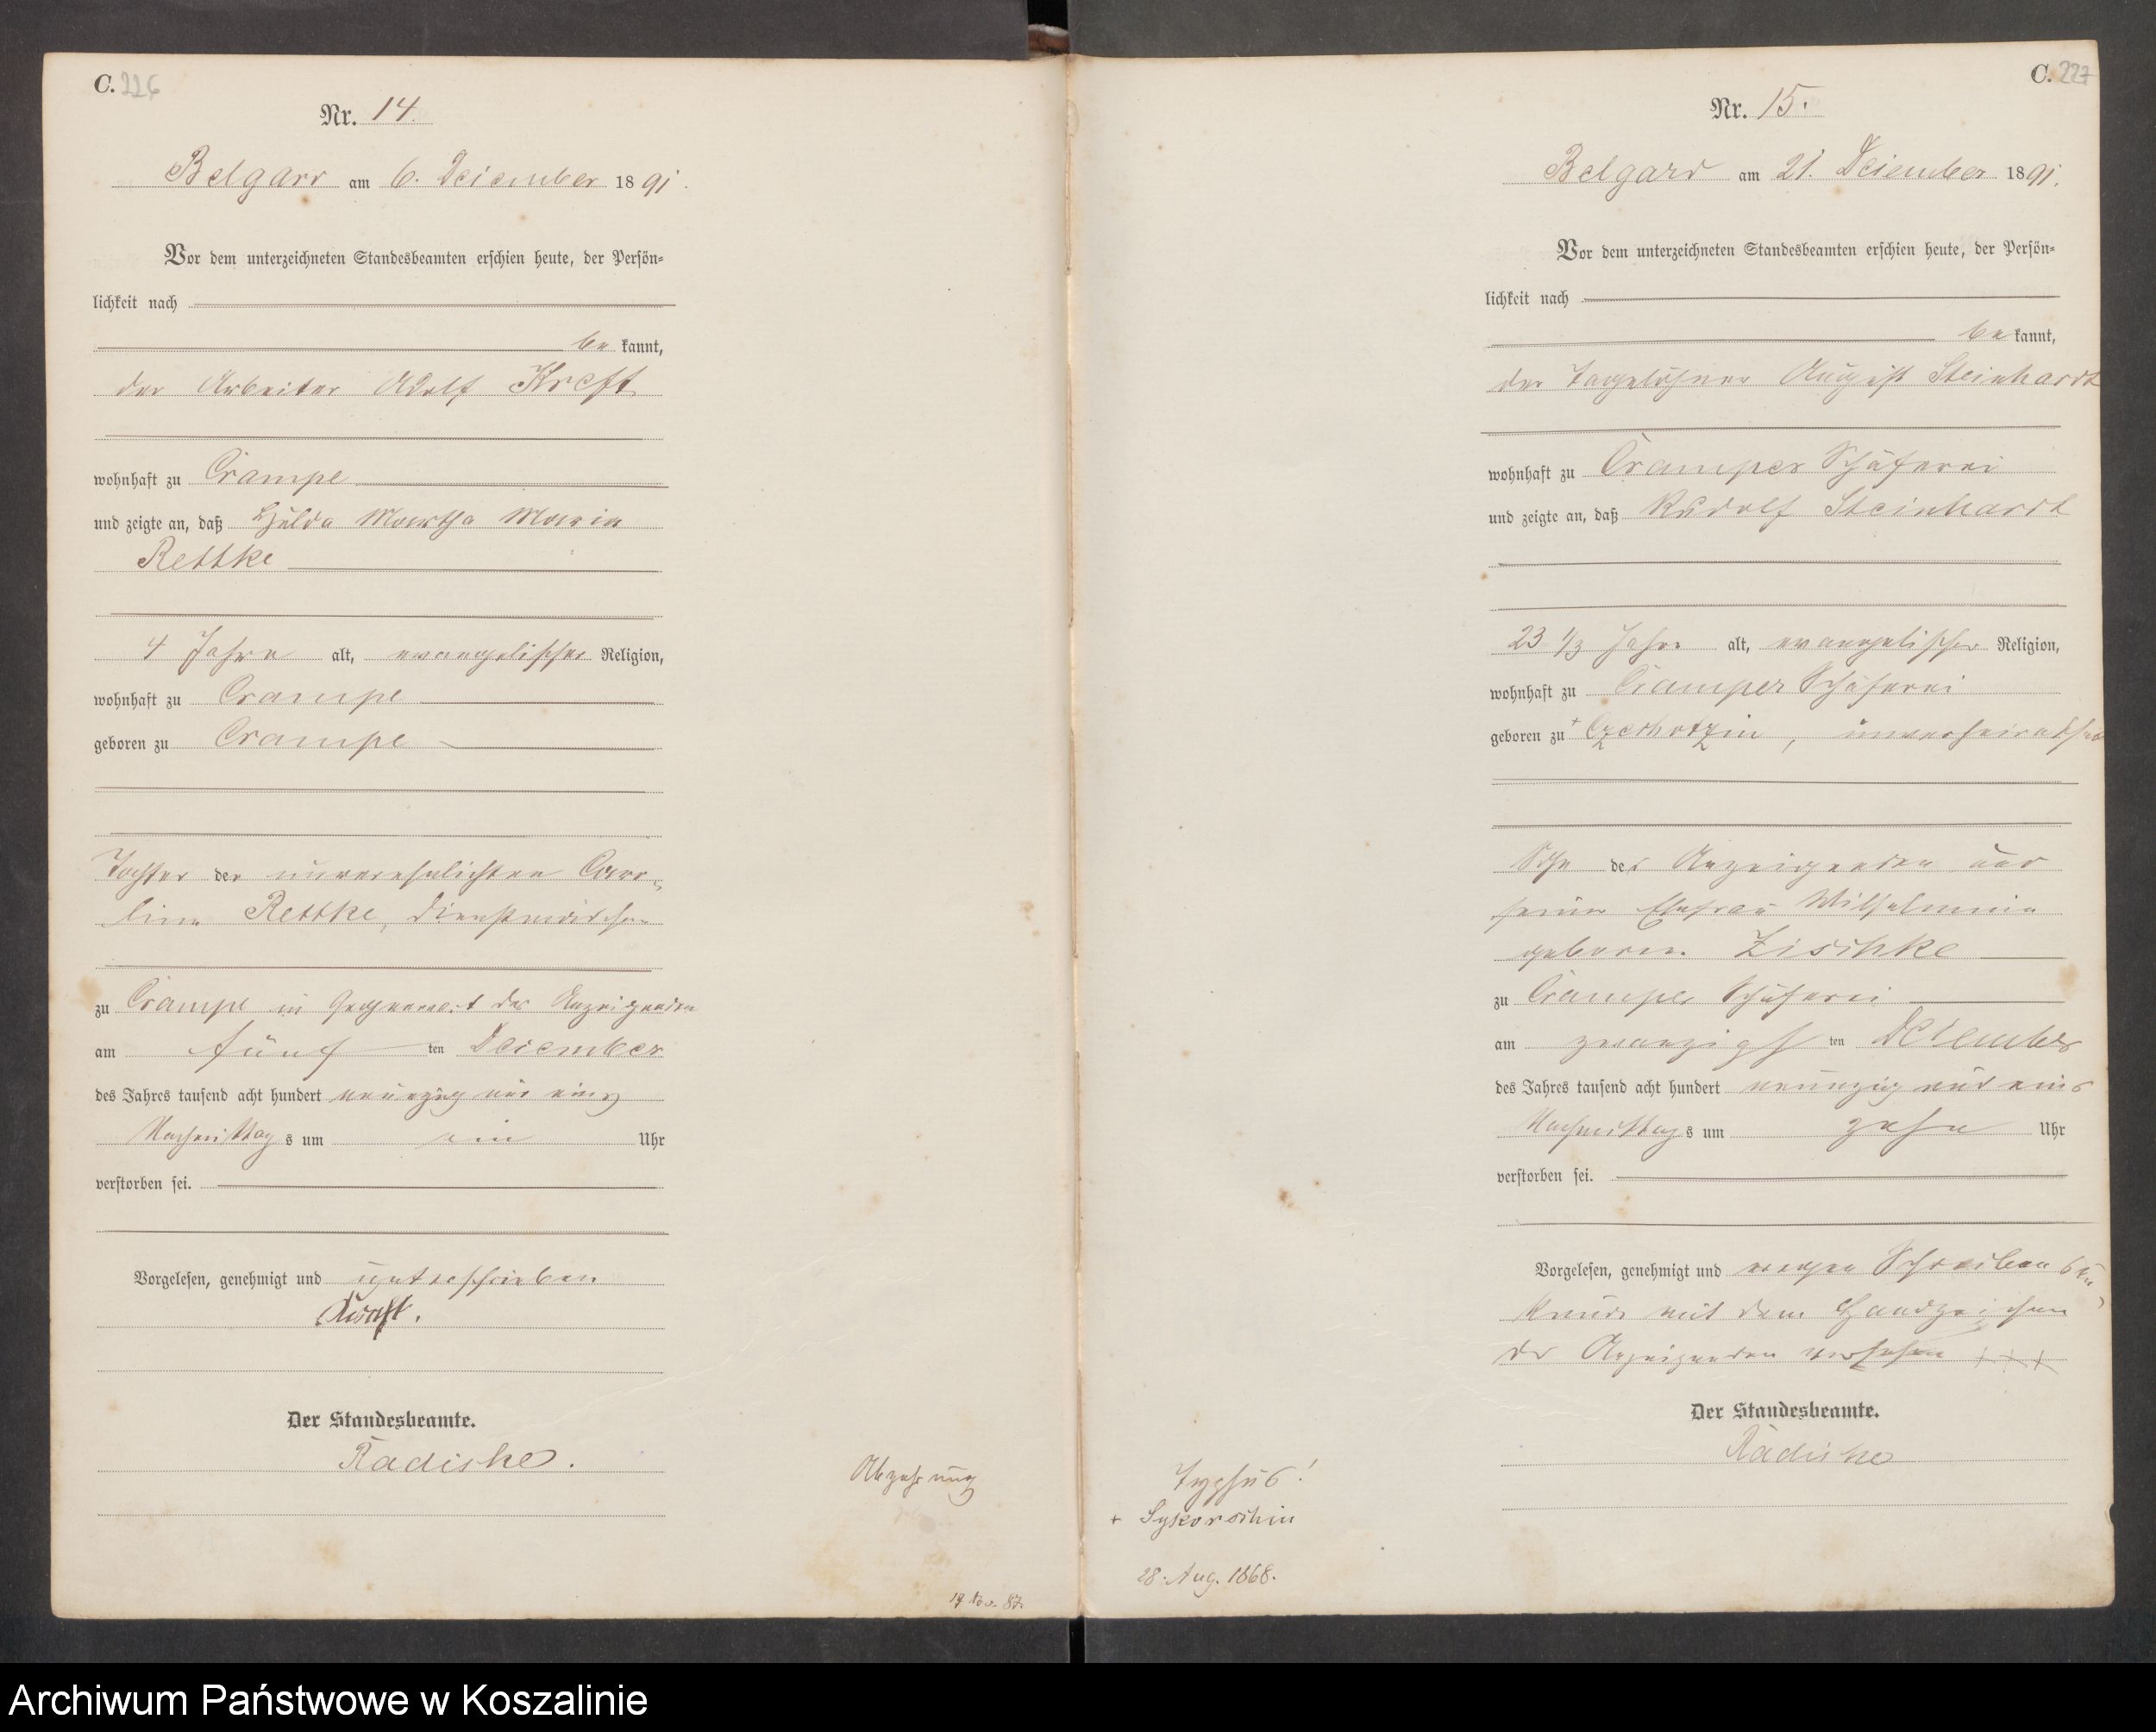 C. 226
Nr. 14.
Belgard am 6. December 1891.
Vor dem unterzeichneten Standesbeamten erschien heute, der Persön-
lichkeit nach
be kannt,
der Arbeiter Adolf Kreft
wohnhaft zu Crampe
und zeigte an, daß Hulda Martha Maria
Rettke
4 Jahre alt, evangelischer Religion,
wohnhaft zu Crampe
geboren zu Crampe
Tochter der unverehelichten Caro-
line Rettke, Dienstmädchen
zu Crampe in Gegenwart des Anzeigenden
am fünf ten December
des Jahres tausend acht hundert neunzig und eins
Nachmittag s um ein Uhr
verstorben sei.
Vorgelesen, genehmigt und unterschrieben
Kreft.
Der Standesbeamte.
Radiske.
Abzehrung
19 Nov. 87.
C. 227
Nr. 15.
Belgard am 21. December 1891.
Vor dem unterzeichneten Standesbeamten erschien heute, der Persön-
lichkeit nach
be kannt,
der Tagelöhner August Steinhardt
wohnhaft zu Cramper Schäferei
und zeigte an, daß Rudolf Steinhardt
23 1/3 Jahre alt, evangelischer Religion,
wohnhaft zu Cramper Schäferei
geboren zu + , unverheirathet
Sohn des Anzeigenden und
seiner Ehefrau Wilhelmine
geborene Zischke
zu Cramper Schäferei
am zwanzigs ten December
des Jahres tausend acht hundert neunzig und eins
Nachmittag s um zehn Uhr
verstorben sei.
Vorgelesen, genehmigt und wegen Schreibens un-
kunde mit dem Handzeichen
des Anzeigenden versehen +++
Der Standesbeamte.
Radiske
Typhus!
+ Sykorschin
28. Aug. 1868.
Archiwum Państwowe w Koszalinie